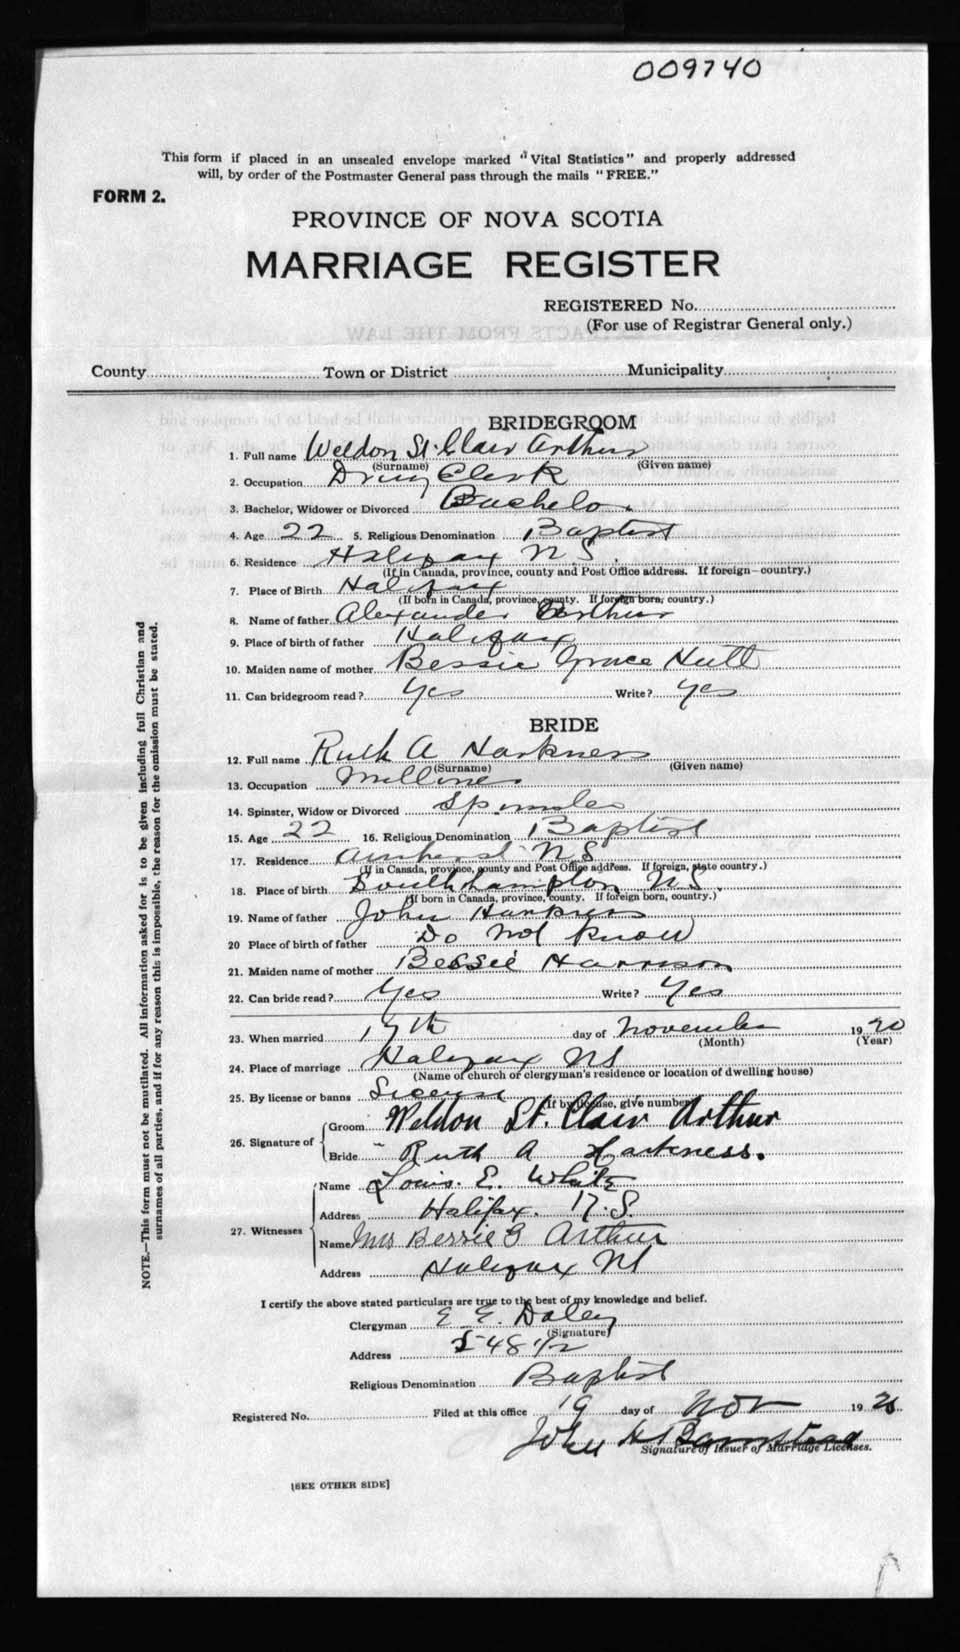 009740
This form if placed in an unsealed envelope marked "Vital Statistics" and properly addressed
will, by order of the Postmaster General pass through the mails "FREE."
FORM 2.
PROVINCE OF NOVA SCOTIA
MARRIAGE REGISTER
REGISTERED No.
(For use of Registrar General only.)
County Town or District Municipality
BRIDEGROOM
1. Full name Weldon St. Clair Arthur
(Surname) (Given name)
2. Occupation Drug Clerk
3. Bachelor, Widower or Divorced Bachelor
4. Age 22 5. Religious Denomination Baptist
6. Residence Halifax N S.
(If in Canada, province, county and Post Office address. If foreign—country.)
7. Place of Birth Halifax
(If born in Canada, province, county. If foreign born, country.)
8. Name of father Alexander Arthur
9. Place of birth of father Halifax
10. Maiden name of mother Bessie Grace Hutt
11. Can bridegroom read? Yes Write? Yes
BRIDE
12. Full name Ruth A Harkness
(Surname) (Given name)
13. Occupation Milliner
14. Spinster, Widow or Divorced Spinster
15. Age 22 16. Religious Denomination Baptist
17. Residence Amherst N S
(If in Canada, province, county and Post Office address. If foreign, state country.)
18. Place of birth Southhampton N S
(If born in Canada, province, county. If foreign born, country.)
19. Name of father John Harkness
20 Place of birth of father Do not know
21. Maiden name of mother Bessie Harrison
22. Can bride read? Yes Write? Yes
23. When married 17th day of November 1920
(Month) (Year)
24. Place of marriage Halifax NS
(Name of church or clergyman's residence or location of dwelling house)
25. By license or banns License
(If by license, give number)
26. Signature of Groom Weldon St. Clair Arthur
Bride Ruth A Harkness.
27. Witnesses Name Louis. E. White
Address Halifax. N.S.
Name Mrs Bessie G Arthur
Address Halifax NS
I certify the above stated particulars are true to the best of my knowledge and belief.
Clergyman E E Daley
(Signature)
Address 48 1/2
Religious Denomination Baptist
Registered No. Filed at this office 19 day of Nov 1920
John H Barnstead
Signature of Issuer of Marriage Licenses.
[SEE OTHER SIDE]
NOTE.—This form must not be mutilated. All information asked for is to be given including full Christian and
surnames of all parties, and if for any reason this is impossible, the reason for the omission must be stated.